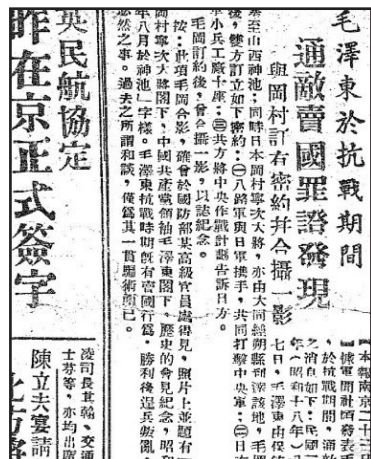 毛澤東於抗戰期間
通敵賣國罪證發現
與岡村訂有密約幷合攝一影
【本報南京二十三日
據軍聞社頃發表毛
於抗戰期間,通敵
之消息如下:民國
年(昭和十八年)八
七日,毛澤東由保
至山西神池;同時日本岡村寧次大將,亦由大同經朔縣到該地,毛
後,雙方訂立如下密約:㊀八路軍與日軍携手,共同打擊中央軍;㊁日
小兵工廠十座;㊂共方將中央作戰計劃告訴日方。
毛岡訂約後,曾合攝一影,以誌紀念。
按:此項毛岡合影,確曾於國防部某高級官員處得見,照片上並題有
岡村寧次大將閣下、中國共產黨領袖毛澤東閣下,歷史的會見紀念,昭和
年八月於神池」字樣。毛澤東抗戰時期旣有賣國行爲,勝利後逞兵叛亂,
必然之事。過去之所謂和談,僅爲其一貫騙術而已。
英民航協定
昨在京正式簽字
凌司長其翰、交通
士芬等,亦均出席
陳立夫宴請
北方